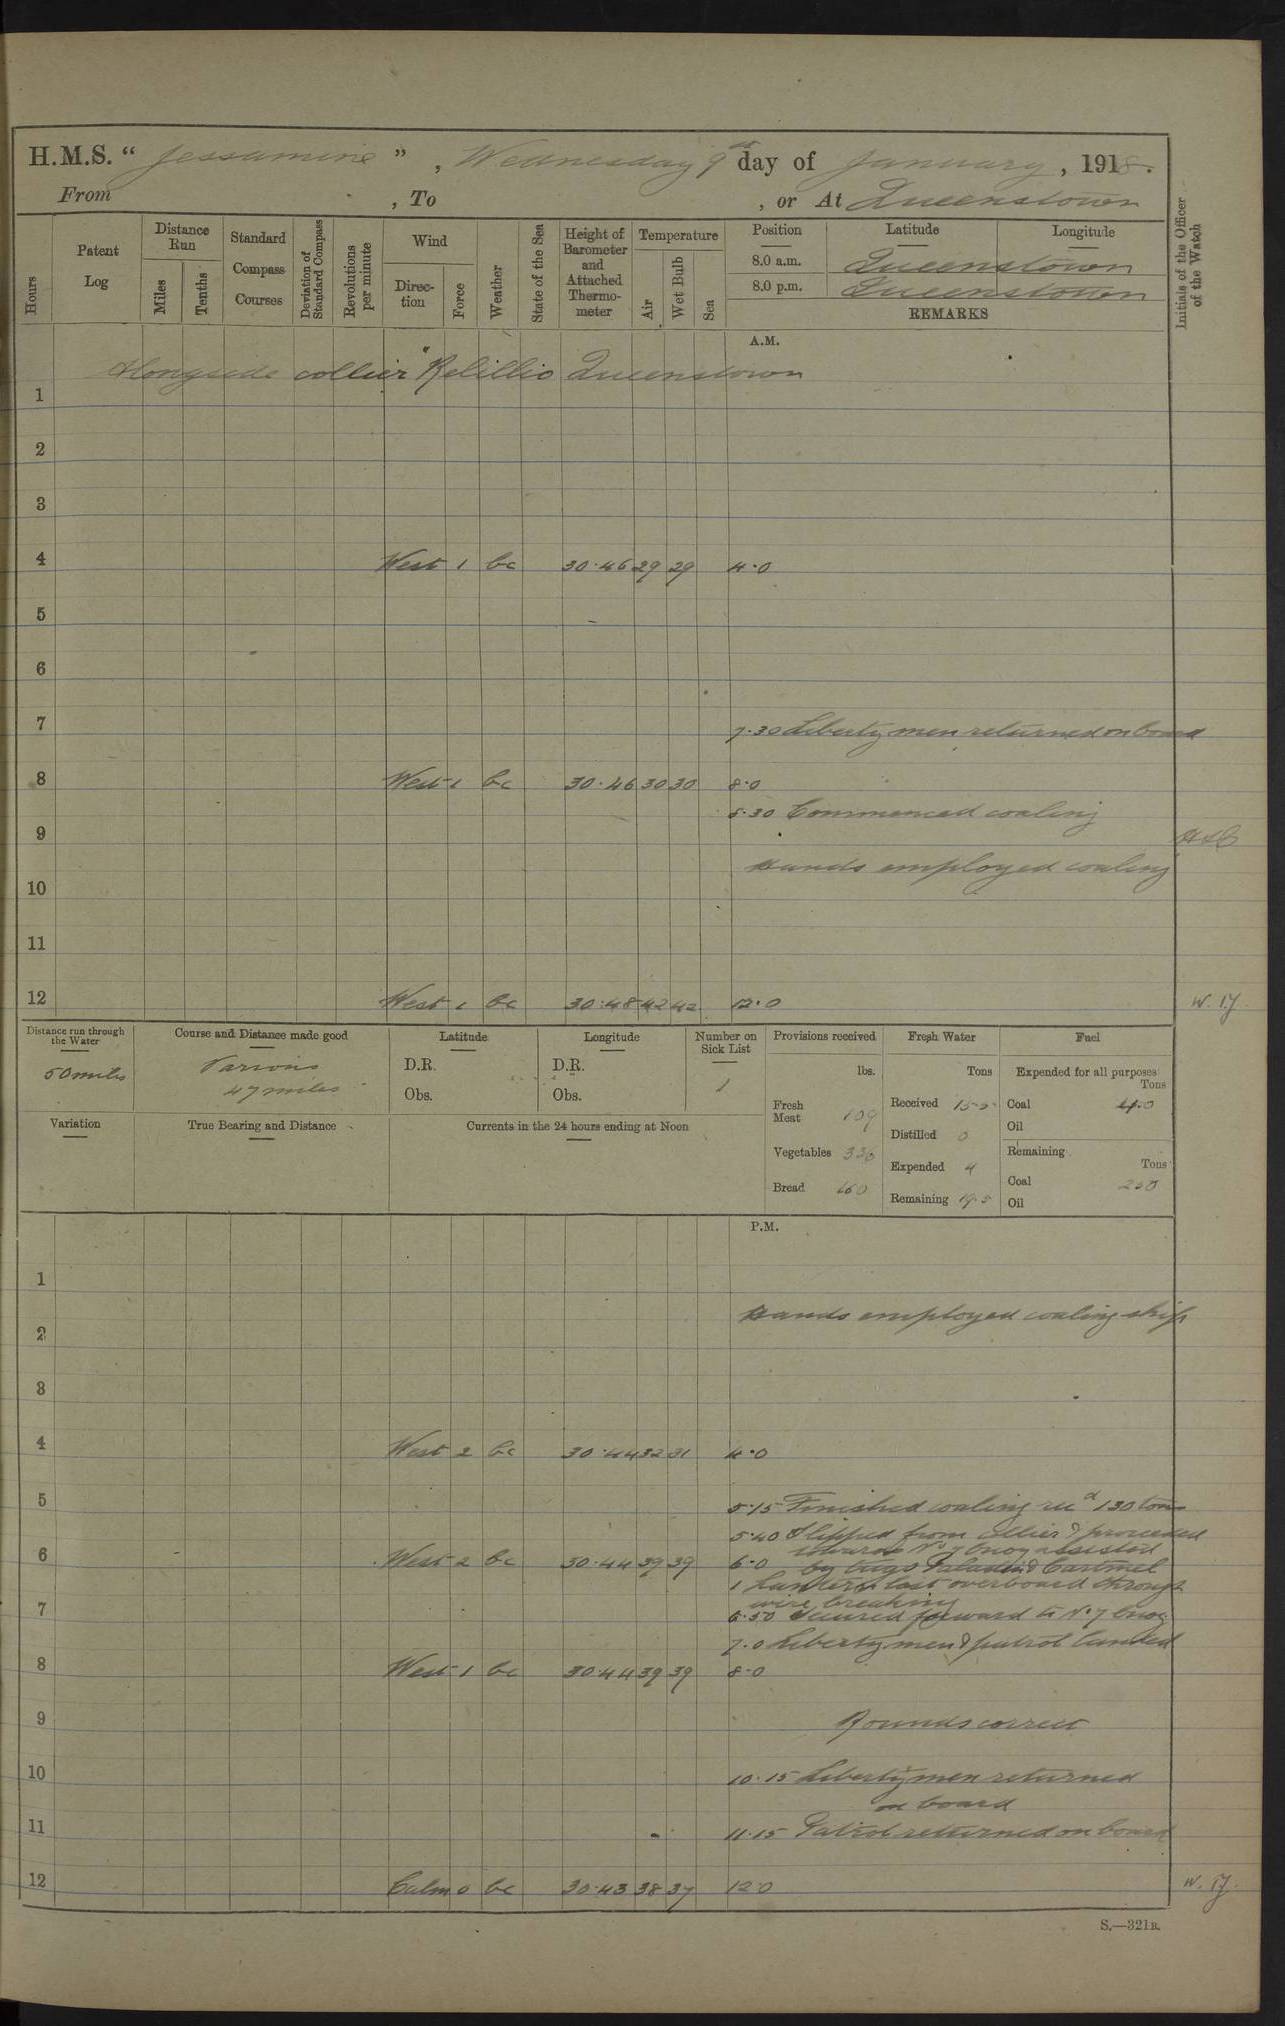 H.M.S. " Jessamine " , Wednesday 9th day of January , 1918.
From , To , or At Queenstown
Hours
Patent Log
Distance Run
Miles
Tenths
Standard Compass Courses
Deviation of Standard Compass
Revolutions per minute
Wind
Direction
Force
Weather
State of the Sea
Height of Barometer and Attached Thermometer
Temperature
Air
Wet Bulb
Sea
Position Latitude Longitude
8.0 a.m. Queenstown
8.0 p.m. Queenstown
REMARKS
Initials of the Officer of the Watch
A.M.
Alongside collier "Relillio Queenstown
1
2
3
4 West 1 bc 30.46 29 29 4.0
5
6
7 7.30 Liberty men returned on board
8 West 1 bc 30.46 30 30 8.0
8.30 Commenced coaling
9
Hands employed coaling
10
11
12 West 1 bc 30.48 42 42 12.0 W.T.J.
Distance run through the Water
50 miles
Course and Distance made good
Various
47 miles
Latitude
D.R.
Obs.
Longitude
D.R.
Obs.
Number on Sick List
1
Provisions received
lbs.
Fresh Meat 109
Vegetables 336
Bread 160
Fresh Water
Tons
Received 15.5
Distilled 0
Expended 4
Remaining 19.5
Fuel
Expended for all purposes
Tons
Coal 4.0
Oil
Remaining
Tons
Coal 230
Oil
Variation
True Bearing and Distance
Currents in the 24 hours ending at Noon
P.M.
1
Hands employed coaling ship
2
3
4 West 2 bc 30.44 32 31 4.0
5 5.15 Finished coaling recd 130 tons
5.40 Slipped from collier & proceeded
towards No 7 buoy assisted
6 West 2 bc 30.44 39 39 6.0 by tugs Paladin & Cartmel
1 Lantern lost overboard through
wire breaking
7 6.50 Secured forward to No 7 buoy
7.0 Liberty men & patrol landed
8 West 1 bc 30.44 39 39 8.0
9 Rounds correct
10 10.15 Liberty men returned
on board
11 11.15 Patrol returned on board
12 Calm 0 bc 30.43 38 37 12.0 W.T.J.
S.—321B.